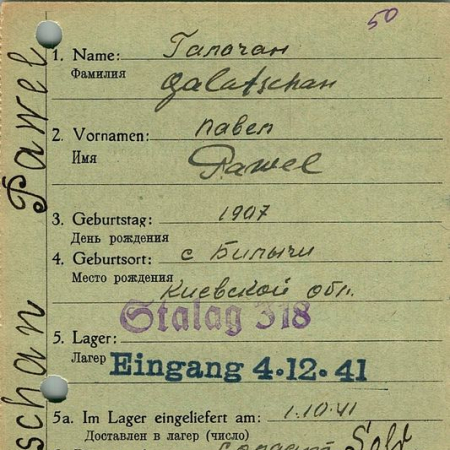 50
1. Name: Галачан
Фамилия
Galatschan
2. Vornamen: Павел
Имя
Pawel
3. Geburtstag: 1907
День рождения
4. Geburtsort: с Биличи
Место рождения
Киевской обл.
Stalag 318
5. Lager:
Лагер
Eingang 4.12.41
5a. Im Lager eingeliefert am: 1.10.41
Доставлен в лагер (число)
Sold
schan Pawel